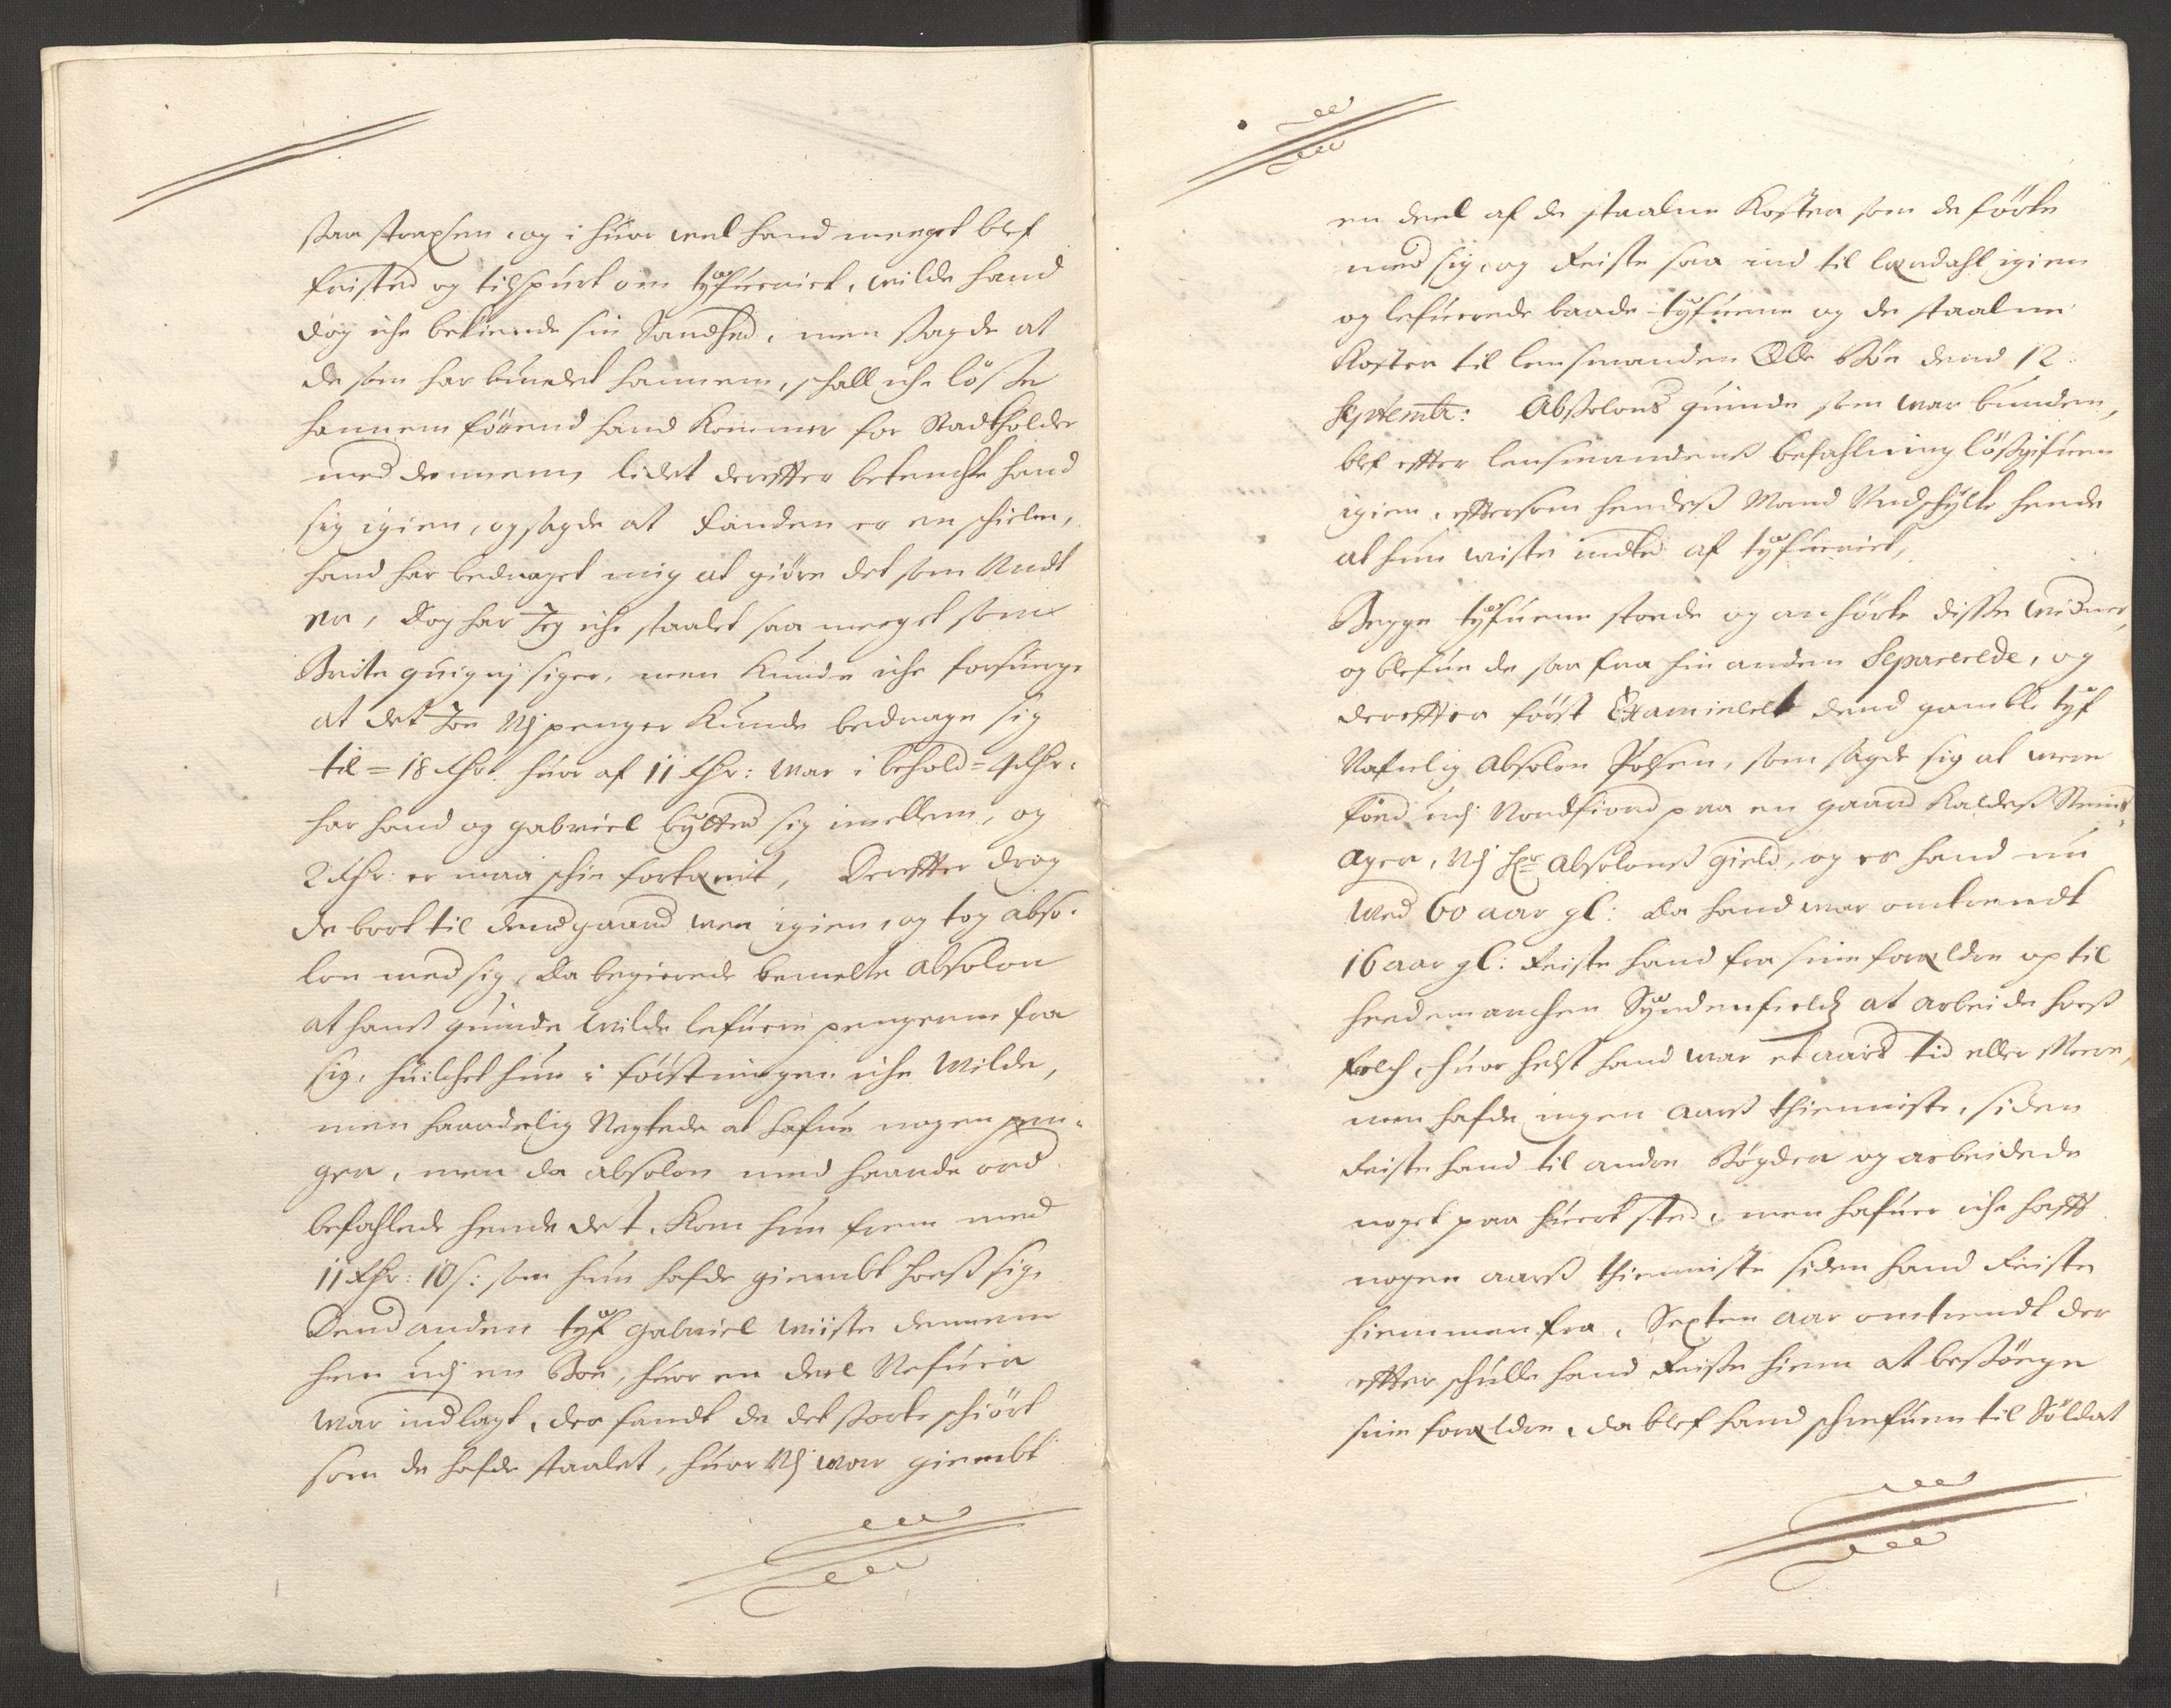 staa strapsen, og i huor vel hand meeget blef
fristed og tilspurt om tyfueriet, wilde hand
dog iche bekiende sin Sandhed, men sagde at
de som har bundet hannem, schall iche lösse
hannem förend hand kommer for Stadtholder
med dennem, lidet derefter betenchte hand
sig igien, og sagde at fanden er en schielm,
hand har bedraget mig at giöre det som Ondt
er, dog har Jeg iche staalet saa meeget som
Brite quigni siger, men kunde iche forsuerge
at det Jo Udj penger kunde bedrage sig
til = 18 Rdr: huor af 11 Rdr: war i behold = 4 Rdr:
har hand og gabriel bytted sig imellem, og
2 Rdr: er maa schie fortæret, Derefter drog
de bort til dend gaard wen igien, og tog abso-
lon med sig, da begierede bemelte absolon
at hans quinde wilde lefuere pengerne fra
sig, huilchet hun i förstningen iche Wilde,
men haardelig Negtede at hafue nogen pen-
ger, men da absolon med haarde ord
befahlede hende det, kom hun frem med
11 Rdr: 10 s: som hun hafde giembt hoes sig,
Dend anden tyf gabriel wiiste dennem
hen udj en Boe, huor en deel Nefuer
War indlagt, der fandt de det storte schiört
som de hafde staalet, huor Udj war giembt
en deel af de staalne Koster som de förte
med sig, og Reiste saa ind til lærdahl igien
og lefuerede baade tyfuene og de staalne
Koster til lensmanden Olle Böe dend 12
Septembr: Absolons quinde som war bunden,
blef efter lensmandens befahlning lösgifuen
igien, eftersom hendes Mand Undschylte hende
at hun wiste indtet af tyfueriet,
Begge tyfuene stoede og anhörte disse widner,
og blefue de saa fra hin anden Separerede, og
derefter först Examineret dend gamble tyf
Nafnlig Absolon Josen, som sagde sig at were
föed udj Nordfiord paa en gaard kaldes Steens
ager, Udj Hr Absolons gield, og er hand nu
wed 60 aar gl: da hand war omtrendt
16 aar gl: Reiste hand fra sine forældre op til
heedemarchen Syndenfields at arbeide hoes
folch, huor helst hand war et aars tid eller Mere,
men hafde ingen aars thienniste, siden
Reiste hand til andre Bögder og arbeidede
noget paa huert sted, men hafuer iche hafft
nogen aars thienniste siden hand Reiste
hiemmen fra, Sexten aar omtrendt der
efter schulle hand Reise hiem at besöege
sine forældre, da blef hand schrefuen til Soldat